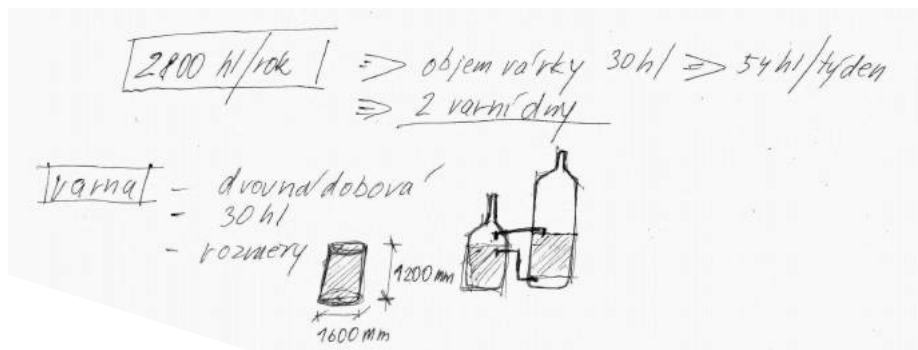 2800 hl/rok => objem várky 30hl => 54 hl/týden
=> 2 varní dny
varna - dvounádobová
- 30hl
- rozměry
1200mm
1600mm